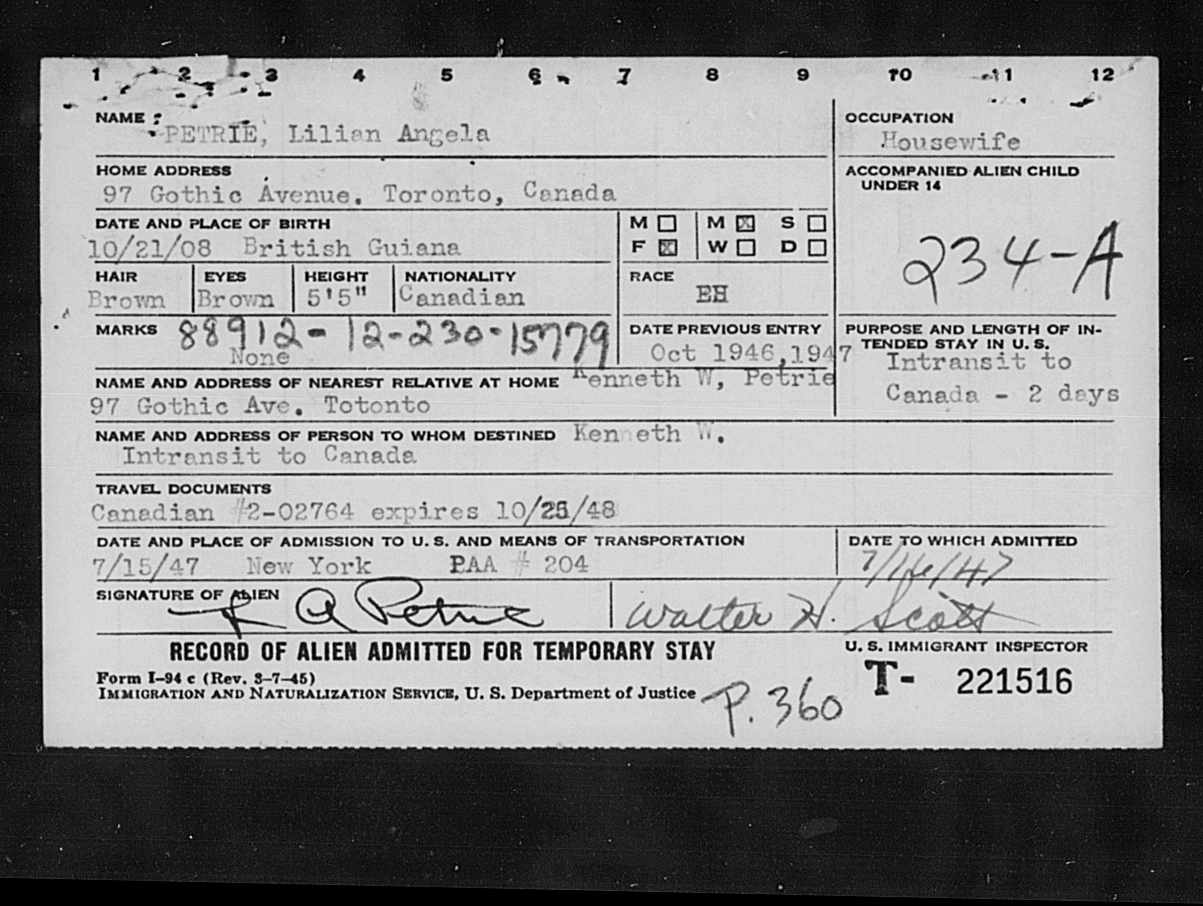 1 2 3 4 5 6 7 8 9 10 11 12
NAME PETRIE, Lilian Angela
OCCUPATION
Housewife
HOME ADDRESS
97 Gothic Avenue. Toronto, Canada
ACCOMPANIED ALIEN CHILD
UNDER 14
234-A
DATE AND PLACE OF BIRTH
10/21/08 British Guiana
M ☐ M ☒ S ☐
F ☒ W ☐ D ☐
HAIR EYES HEIGHT NATIONALITY RACE
Brown Brown 5'5" Canadian EH
MARKS 88912-12-230-15779
None
DATE PREVIOUS ENTRY
Oct 1946,1947
PURPOSE AND LENGTH OF IN-
TENDED STAY IN U. S.
Intransit to
Canada - 2 days
NAME AND ADDRESS OF NEAREST RELATIVE AT HOME Kenneth W, Petrie
97 Gothic Ave. Totonto
NAME AND ADDRESS OF PERSON TO WHOM DESTINED Kenneth W.
Intransit to Canada
TRAVEL DOCUMENTS
Canadian #2-02764 expires 10/25/48
DATE AND PLACE OF ADMISSION TO U. S. AND MEANS OF TRANSPORTATION
7/15/47 New York PAA # 204
DATE TO WHICH ADMITTED
7/16/47
SIGNATURE OF ALIEN
L A Petrie Walter H. Scott
RECORD OF ALIEN ADMITTED FOR TEMPORARY STAY
U. S. IMMIGRANT INSPECTOR
Form I-94 c (Rev. 3-7-45)
IMMIGRATION AND NATURALIZATION SERVICE, U. S. Department of Justice
P. 360
T- 221516